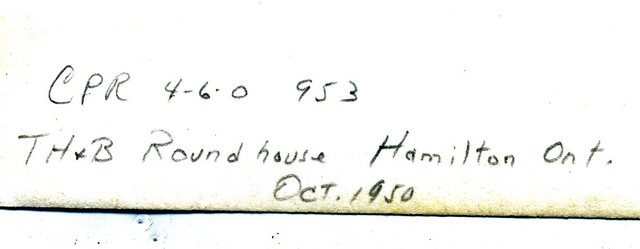 CPR 4-6-0 953
TH&B Roundhouse Hamilton Ont.
Oct. 1950